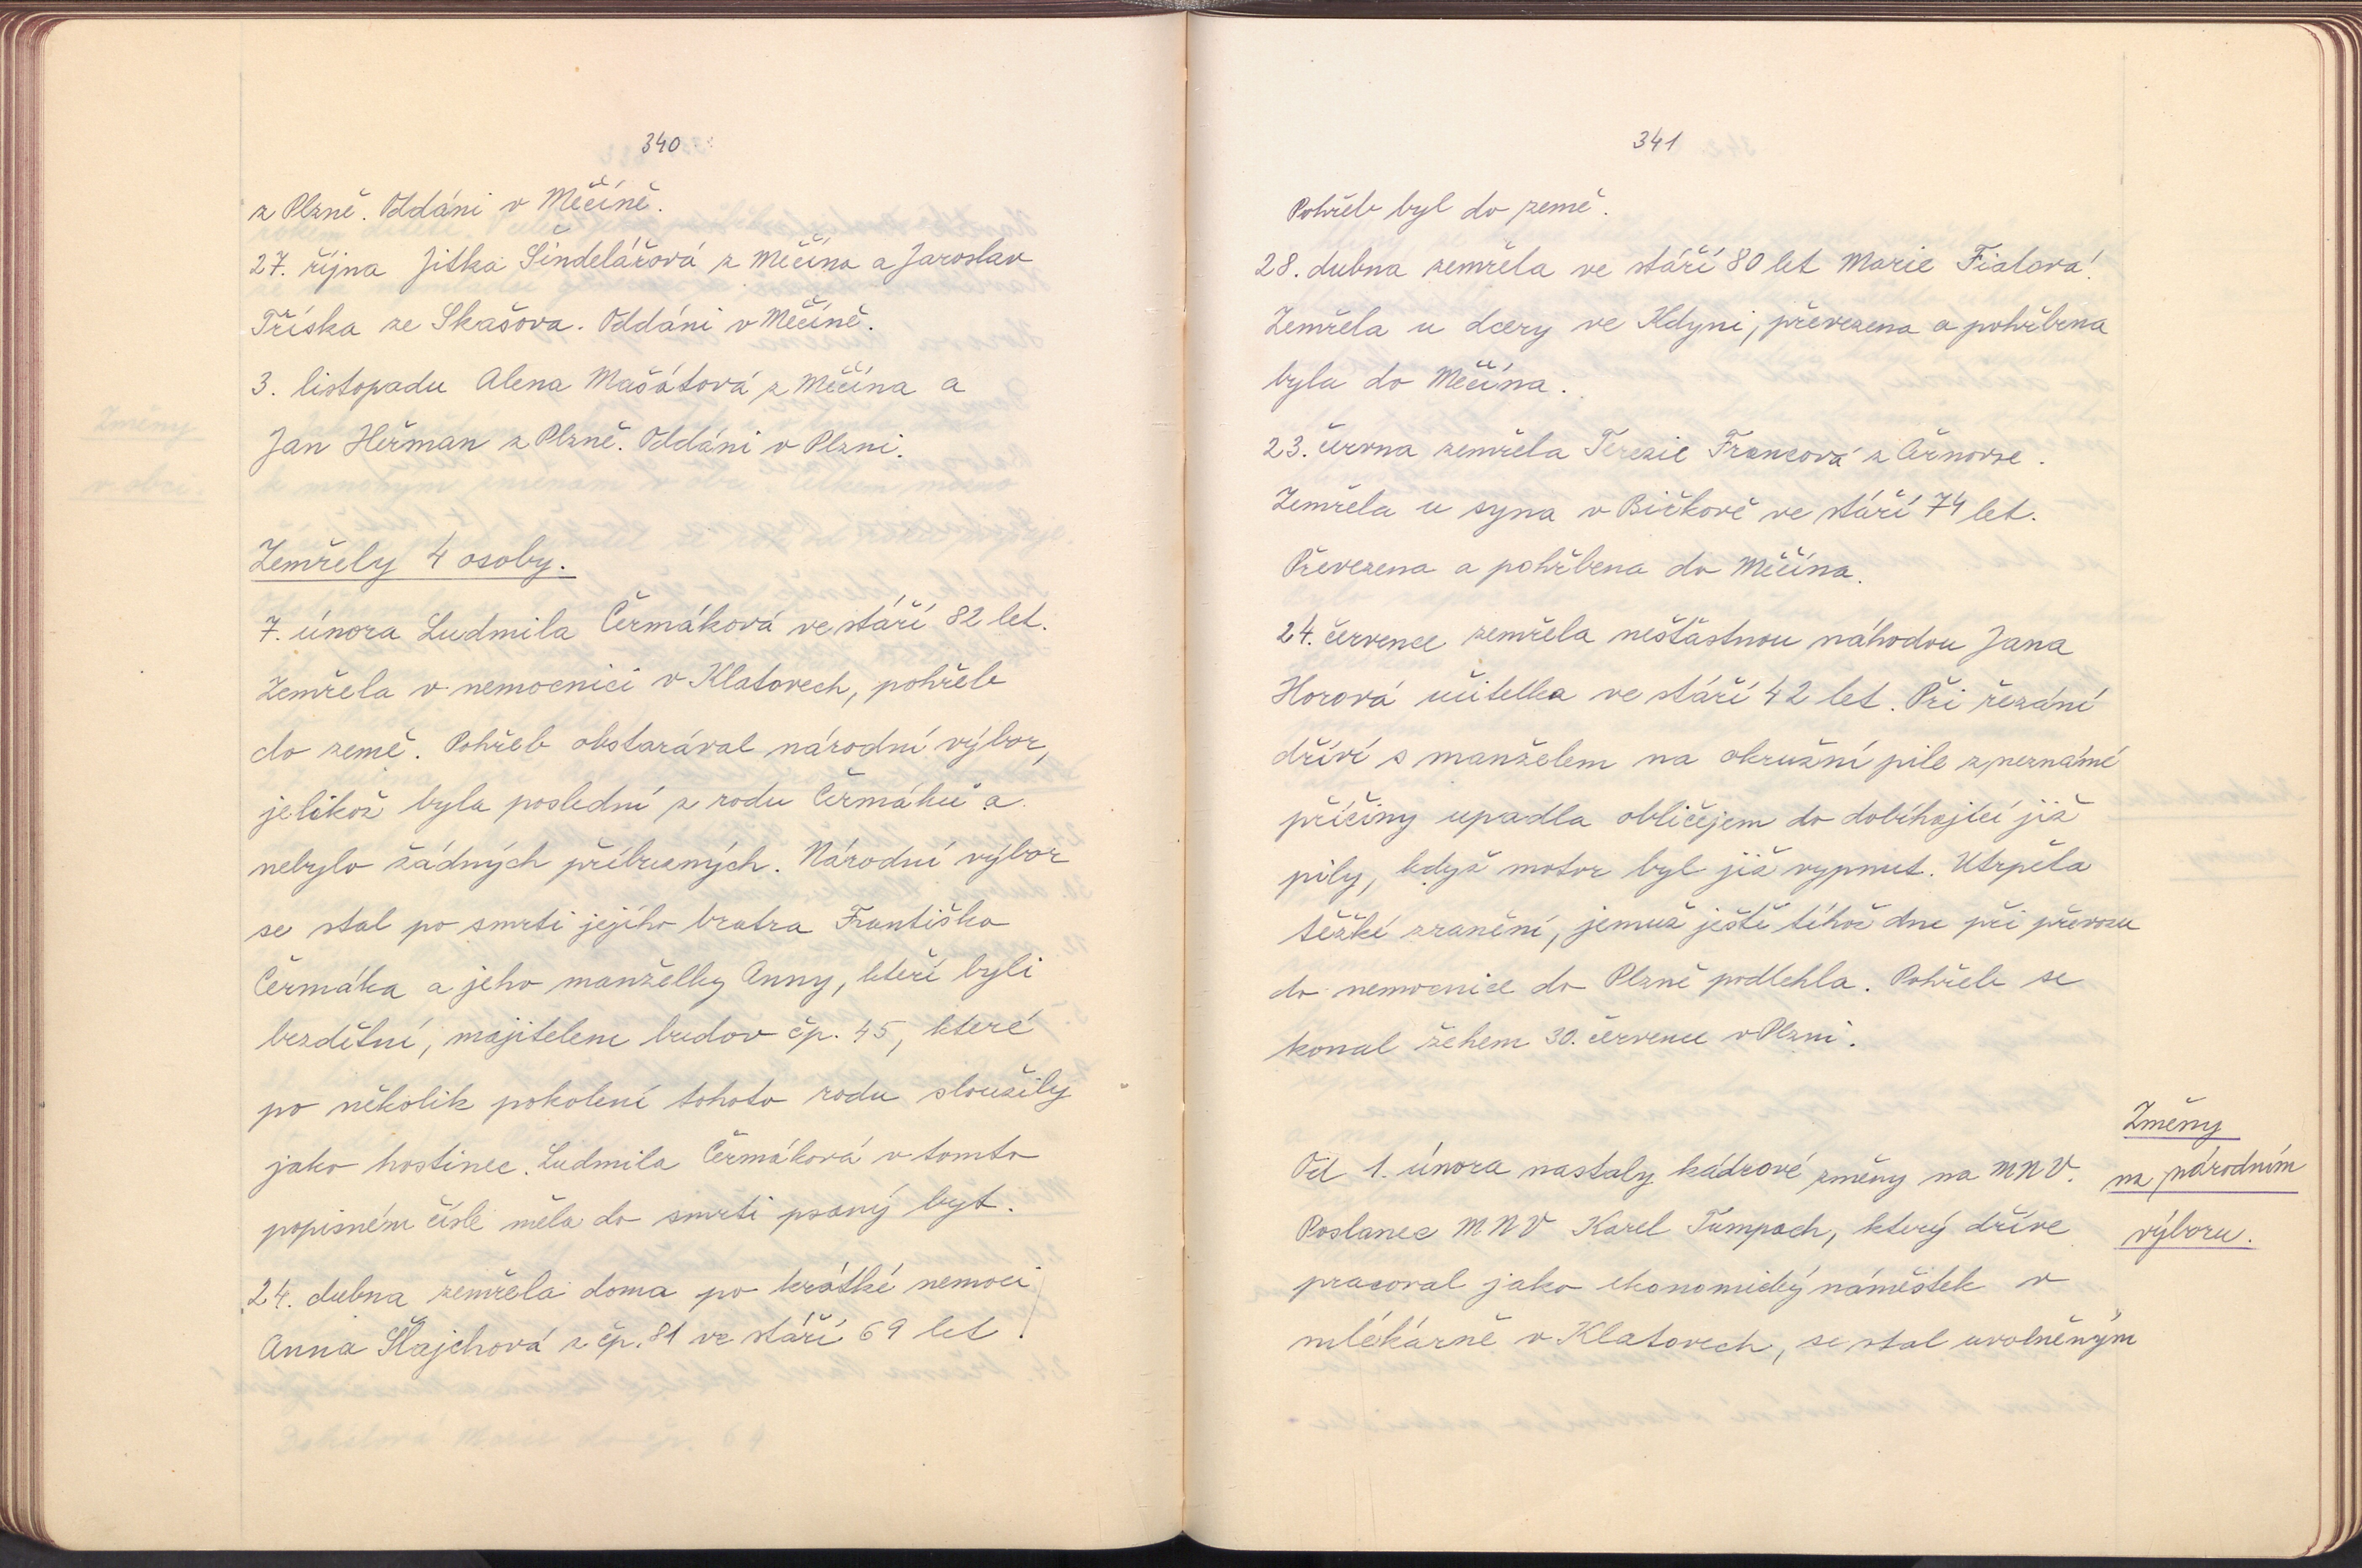 340
z Plzně. Oddáni v Měčíně.
27. října Jitka Šindelářová z Měčína a Jaroslav
Tříska ze Skašova. Oddáni v Měčíně.
3. listopadu Alena Mašátová z Měčína a
Jan Heřman z Plzně. Oddáni v Plzni.
Zemřely 4 osoby.
7. února Ludmila Čermáková ve stáří 82 let.
Zemřela v nemocnici v Klatovech, pohřeb
do země. Pohřeb obstarával národní výbor,
jelikož byla poslední z rodu Čermáků a
nebylo žádných příbuzných. Národní výbor
se stal po smrti jejího bratra Františka
Čermáka a jeho manželky Anny, kteří byli
bezdětní, majitelem budov čp. 45, které
po několik pokolení tohoto rodu sloužily
jako hostinec. Ludmila Čermáková v tomto
popisném čísle měla do smrti psaný byt.
24. dubna zemřela doma po krátké nemoci
Anna Šlajchová z čp. 81 ve stáří 69 let.
341
Pohřeb byl do země.
28. dubna zemřela ve stáří 80 let Marie Fialová.
Zemřela u dcery ve Kdyni, převezena a pohřbena
byla do Měčína.
23. června zemřela Terezie Francová z Črnovze.
Zemřela u syna v Bičkově ve stáří 74 let.
Převezena a pohřbena do Měčína.
24. července zemřela nešťastnou náhodou Jana
Horová učitelka ve stáří 42 let. Při řezání
dříví s manželem na okružní pile z neznámé
příčiny upadla obličejem do dobíhající již
pily, když motor byl již vypnut. Utrpěla
těžké zranění, jemuž ještě téhož dne při převozu
do nemocnice do Plzně podlehla. Pohřeb se
konal žehem 30. července v Plzni.
Změny
na národním
výboru.
Od 1. února nastaly kádrové změny na MNV.
Poslanec MNV Karel Tumpach, který dříve
pracoval jako ekonomický náměstek v
mlékárně v Klatovech, se stal uvolněným